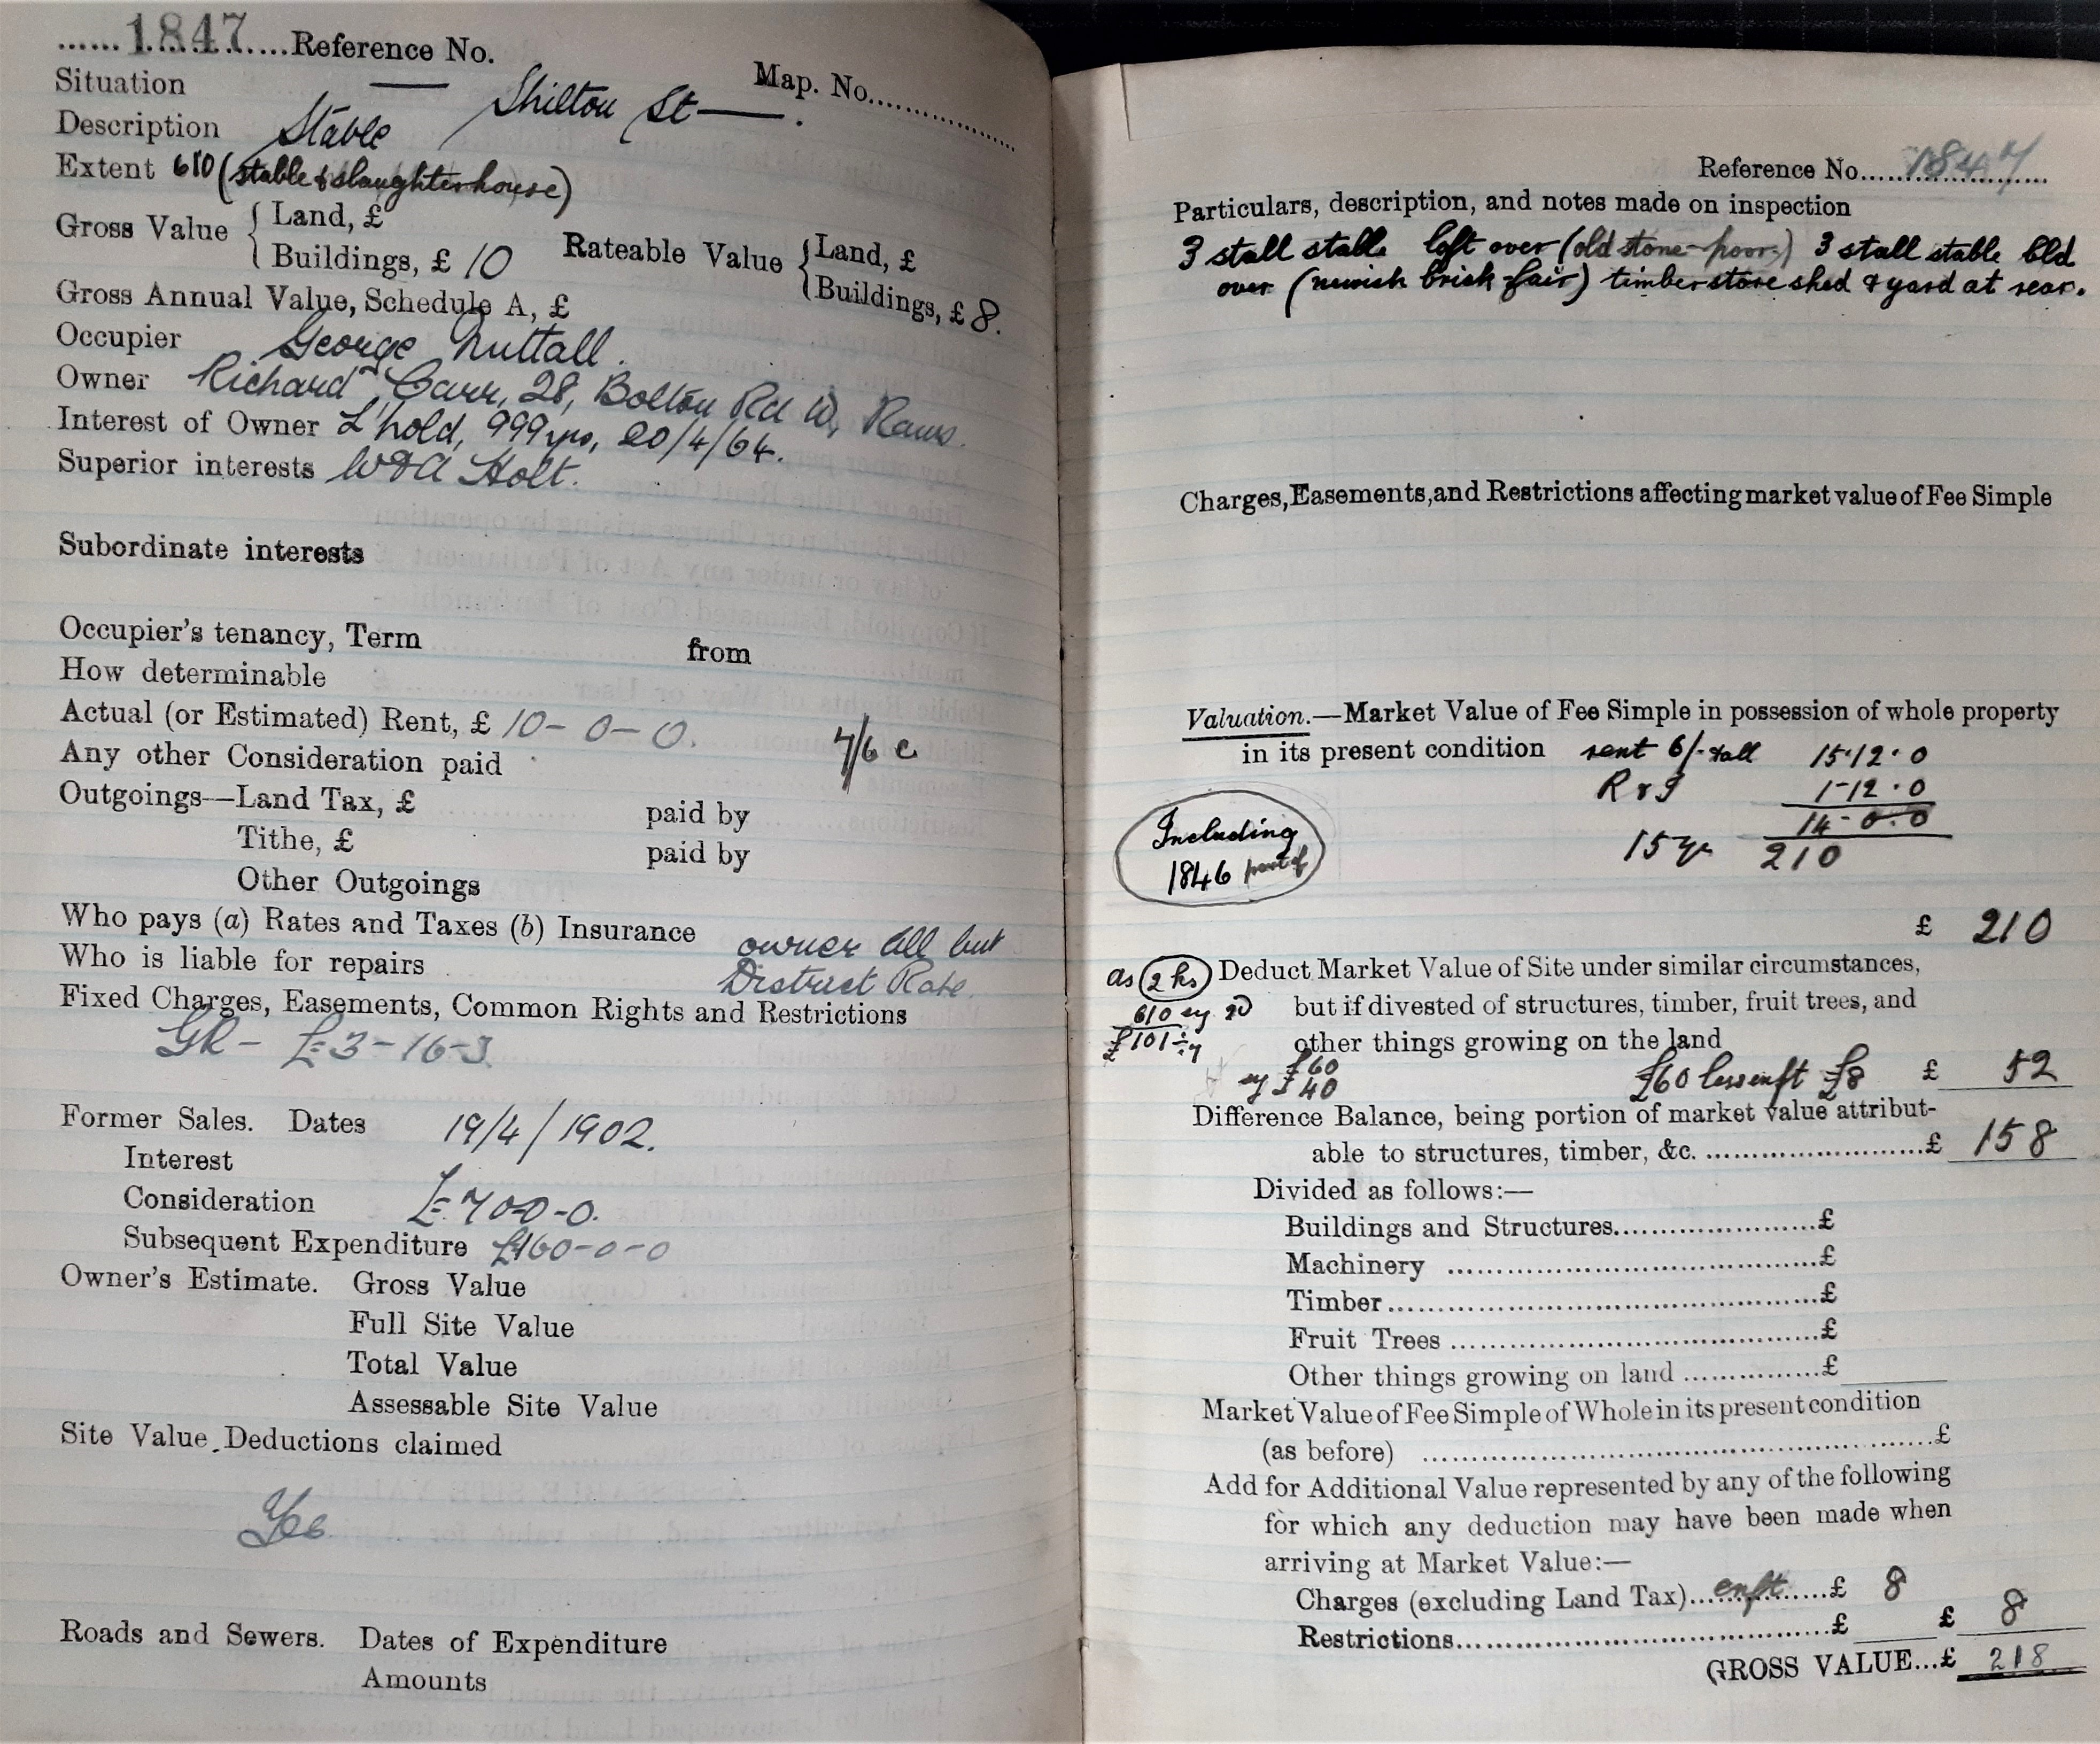 ......1847......Reference No.
Map. No...................
Situation — Shilton St —.
Description Stable
Extent 610 (stable & slaughterhouse)
Gross Value { Land, £
Buildings, £ 10
Rateable Value { Land, £
Buildings, £ 8.
Gross Annual Value, Schedule A, £
Occupier George Nuttall.
Owner Richard Carr, 28, Bolton Rd W, Raws.
Interest of Owner L'hold, 999 yrs, 20/4/64.
Superior interests W & A Holt.
Subordinate interests
Occupier's tenancy, Term from
How determinable
Actual (or Estimated) Rent, £ 10-0-0. 7/6 c
Any other Consideration paid
Outgoings—Land Tax, £ paid by
Tithe, £ paid by
Other Outgoings
Who pays (a) Rates and Taxes (b) Insurance owner all but
Who is liable for repairs District Rate.
Fixed Charges, Easements, Common Rights and Restrictions
GR - £3-16-3
Former Sales. Dates 19/4/1902.
Interest
Consideration £70-0-0.
Subsequent Expenditure £160-0-0
Owner's Estimate. Gross Value
Full Site Value
Total Value
Assessable Site Value
Site Value Deductions claimed
Yes
Roads and Sewers. Dates of Expenditure
Amounts
Reference No......1847......
Particulars, description, and notes made on inspection
3 stall stable loft over (old stone-poor) 3 stall stable bld
over (newish brick-fair) timber store shed & yard at rear.
Charges, Easements, and Restrictions affecting market value of Fee Simple
Valuation.—Market Value of Fee Simple in possession of whole property
in its present condition rent 6/- 15.12.0
1-12.0
14-0.0
15 yr 210
Including
1846 part of
£ 210
as (2 hs) Deduct Market Value of Site under similar circumstances,
610 but if divested of structures, timber, fruit trees, and
£101 other things growing on the land
£60
£40
£60 less enft £8 £ 52
Difference Balance, being portion of market value attribut-
able to structures, timber, &c. ........................£ 158
Divided as follows:—
Buildings and Structures......................£
Machinery ........................................£
Timber..............................................£
Fruit Trees ........................................£
Other things growing on land ...............£
Market Value of Fee Simple of Whole in its present condition
(as before) ..................................................£
Add for Additional Value represented by any of the following
for which any deduction may have been made when
arriving at Market Value:—
Charges (excluding Land Tax)...enft......£ 8
Restrictions........................................£ £ 8
GROSS VALUE...£ 218